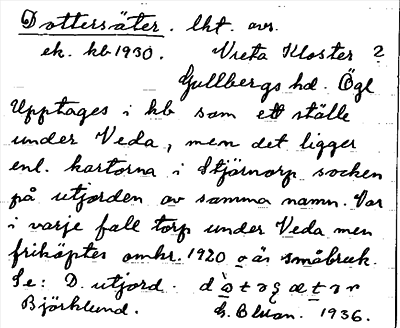 Dottersäter. lht. avs.
ek. kb 1930. Vreta Kloster 2
Gullbergs hd. Ögl
Upptages i kb som ett ställe
under Veda, men det ligger
enl. kartorna i Stjärnorp socken
på utjorden av samma namn. Var
i varje fall torp under Veda men
friköptes omkr. 1920 o är småbruk.
Se: D. utjord.
Björklund. 1936.